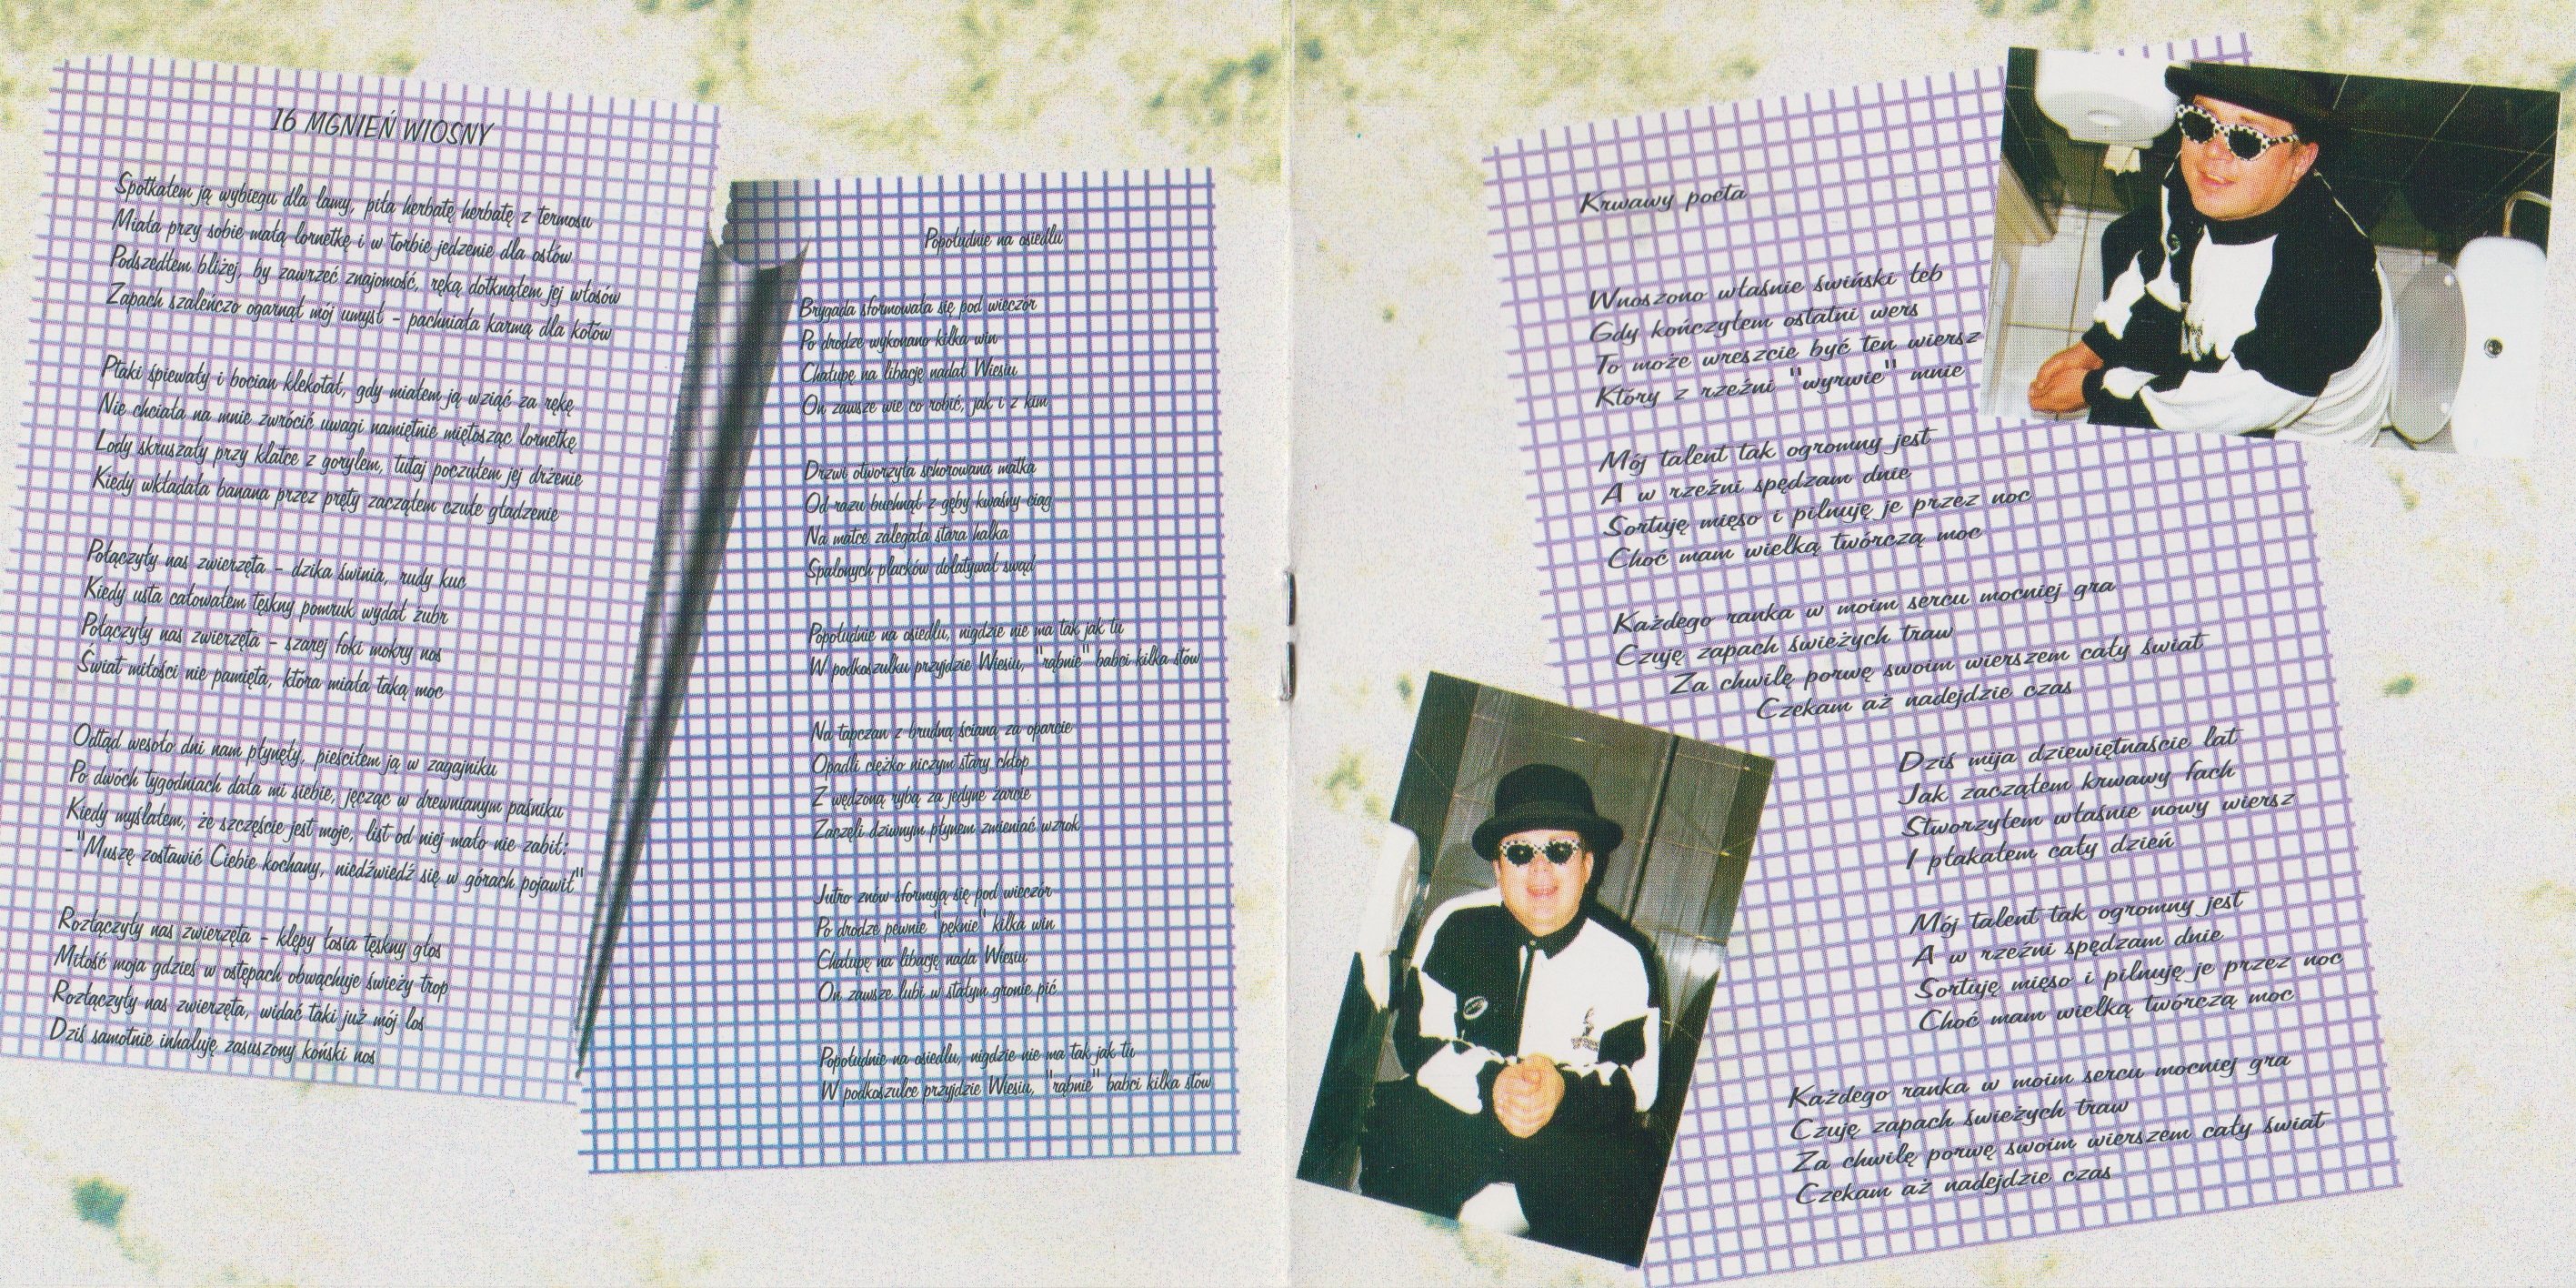 16 MGNIEŃ WIOSNY
Spotkałem ją wybiegu dla lamy, piła herbatę herbatę z termosu
Miała przy sobie małą lornetkę i w torbie jedzenie dla osłów
Podszedłem bliżej, by zawrzeć znajomość, ręką dotknąłem jej włosów
Zapach szaleńczo ogarnął mój umysł - pachniała karmą dla kotów
Ptaki śpiewały i bocian klekotał, gdy miałem ją wziąć za rękę
Nie chciała na mnie zwrócić uwagi namiętnie miętosząc lornetkę
Lody skruszały przy klatce z gorylem, tutaj poczułem jej drżenie
Kiedy wkładała banana przez pręty zacząłem czułe gładzenie
Połączyły nas zwierzęta - dzika świnia, rudy kuc
Kiedy usta całowałem tęskny pomruk wydał żubr
Połączyły nas zwierzęta - szarej foki mokry nos
Świat miłości nie pamięta, która miała taką moc
Odtąd wesoło dni nam płynęły, pieściłem ją w zagajniku
Po dwóch tygodniach dała mi siebie, jęcząc w drewnianym paśniku
Kiedy myślałem, że szczęście jest moje, list od niej mało nie zabił:
-"Muszę zostawić Ciebie kochany, niedźwiedź się w górach pojawił"
Rozłączyły nas zwierzęta - klępy łosia tęskny głos
Miłość moja gdzieś w ostępach obwąchuje świeży trop
Rozłączyły nas zwierzęta, widać taki już mój los
Dziś samotnie inhaluję zasuszony koński nos
Popołudnie na osiedlu
Brygada sformowała się pod wieczór
Po drodze wykonano kilka win
Chałupę na libację nadał Wiesiu
On zawsze wie co robić, jak i z kim
Drzwi otworzyła schorowana matka
Od razu buchnął z gęby kwaśny ciąg
Na matce zalegała stara halka
Spalonych placków dolatywał swąd
Popołudnie na osiedlu, nigdzie nie ma tak jak tu
W podkoszulku przyjdzie Wiesiu, "rąbnie" babci kilka słów
Na tapczan z brudną ścianą za oparcie
Opadli ciężko niczym stary chłop
Z wędzoną rybą za jedyne żarcie
Zaczęli dziwnym płynem zmieniać wzrok
Jutro znów sformują się pod wieczór
Po drodze pewnie "pęknie" kilka win
Chałupę na libację nada Wiesiu
On zawsze lubi w stałym gronie pić
Popołudnie na osiedlu, nigdzie nie ma tak jak tu
W podkoszulce przyjdzie Wiesiu, "rąbnie" babci kilka słów
Krwawy poeta
Wnoszono właśnie świński łeb
Gdy kończyłem ostatni wers
To może wreszcie być ten wiersz
Który z rzeźni "wyrwie" mnie
Mój talent tak ogromny jest
A w rzeźni spędzam dnie
Sortuję mięso i pilnuję je przez noc
Choć mam wielką twórczą moc
Każdego ranka w moim sercu mocniej gra
Czuję zapach świeżych traw
Za chwilę porwę swoim wierszem cały świat
Czekam aż nadejdzie czas
Dziś mija dziewiętnaście lat
Jak zacząłem krwawy fach
Stworzyłem właśnie nowy wiersz
I płakałem cały dzień
Mój talent tak ogromny jest
A w rzeźni spędzam dnie
Sortuję mięso i pilnuję je przez noc
Choć mam wielką twórczą moc
Każdego ranka w moim sercu mocniej gra
Czuję zapach świeżych traw
Za chwilę porwę swoim wierszem cały świat
Czekam aż nadejdzie czas